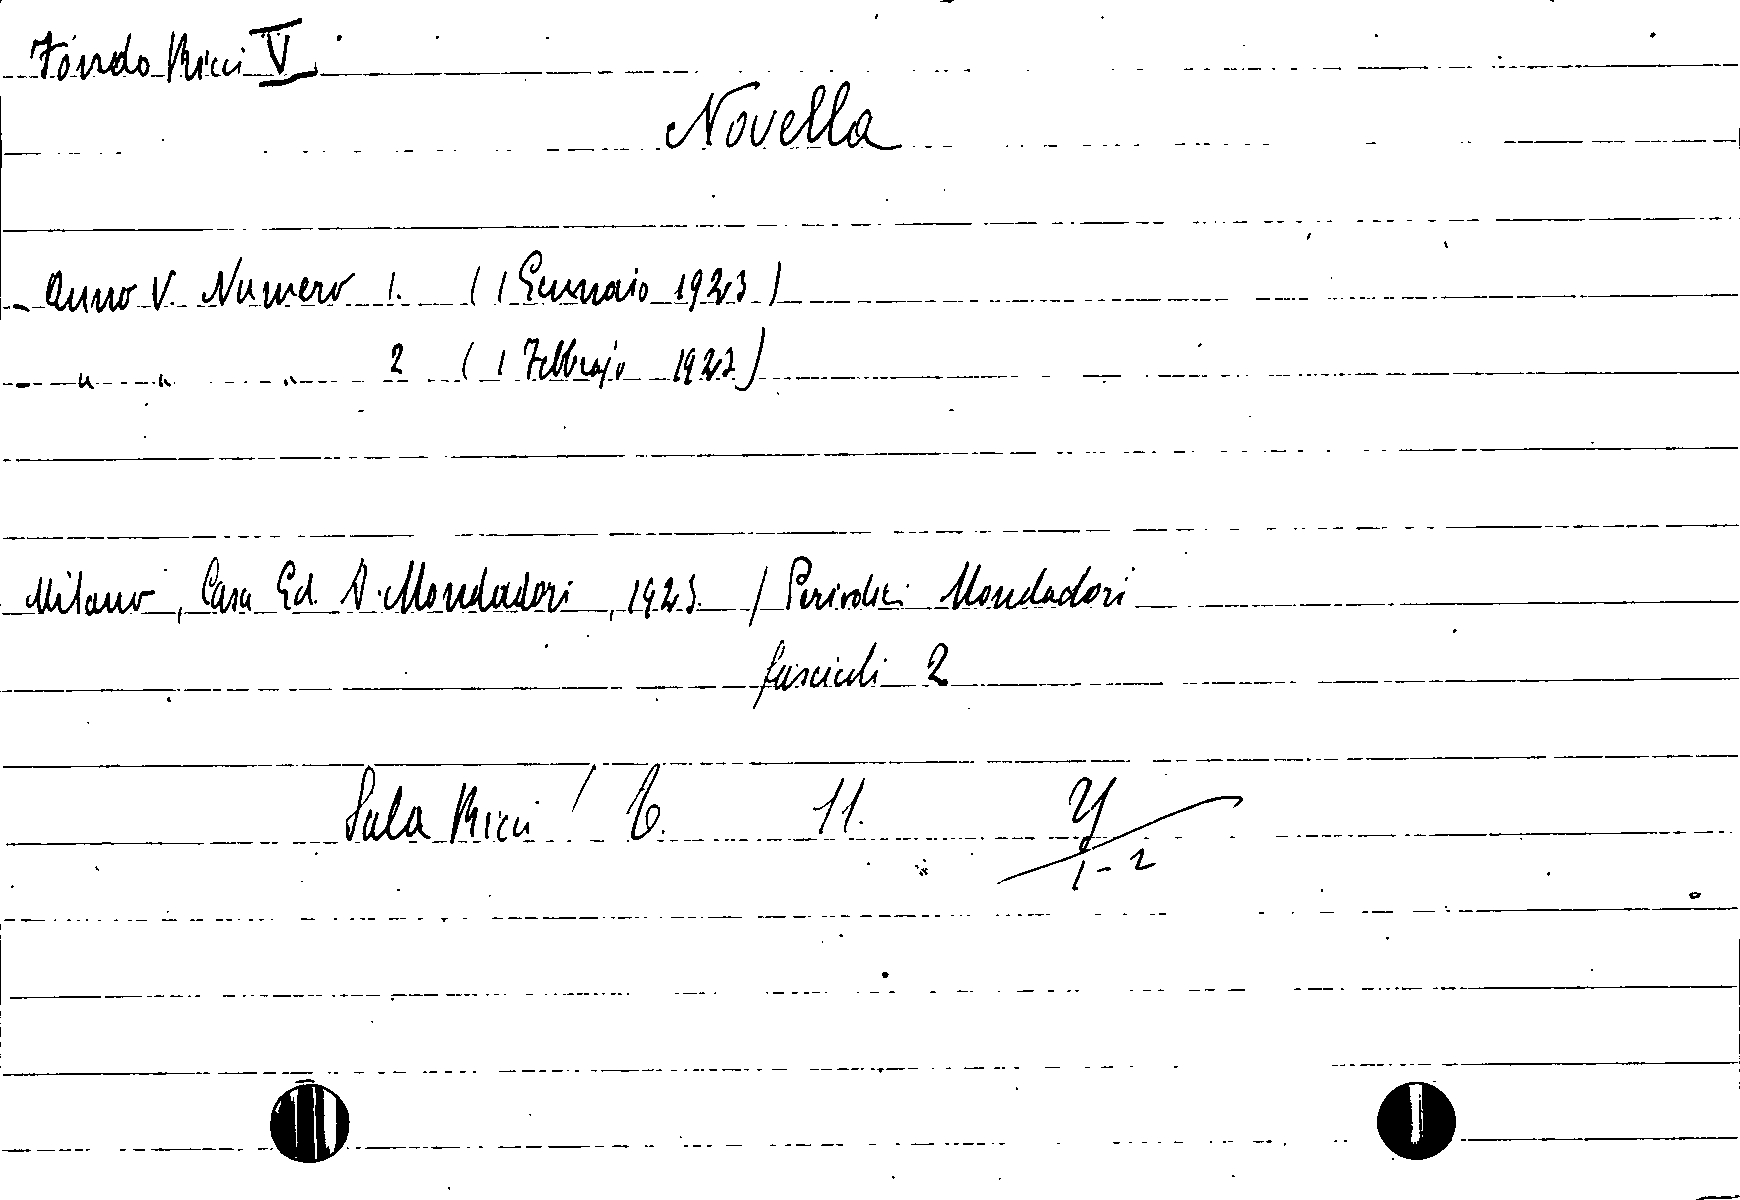 Fondo Ricci V
Novella
- Anno V. Numero 1. (1 Gennaio 1923)
- " " " 2 (1 Febbraio 1923)
Milano, Casa Ed. A. Mondadori, 1923. / Periodici Mondadori
fascicoli 2
Sala Ricci / 6. 11. Y
1-2